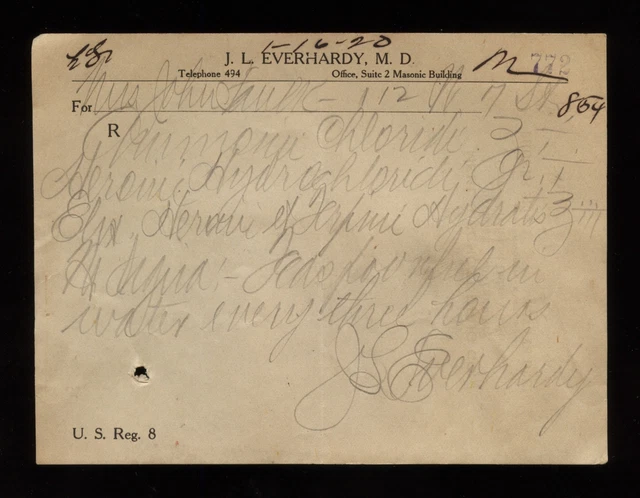 1-16-20
J. L. EVERHARDY, M. D.
772
Telephone 494 Office, Suite 2 Masonic Building
For Mrs John 112 N 7 St
854
R
Ammonii Chloride ʒ i
Heroin Hydrochloride Gr. i
Elix. Heroin & Terpini Hydratis ℥ iii
M Signa:- Teaspoonful in
water every three hours
J L Everhardy
U. S. Reg. 8